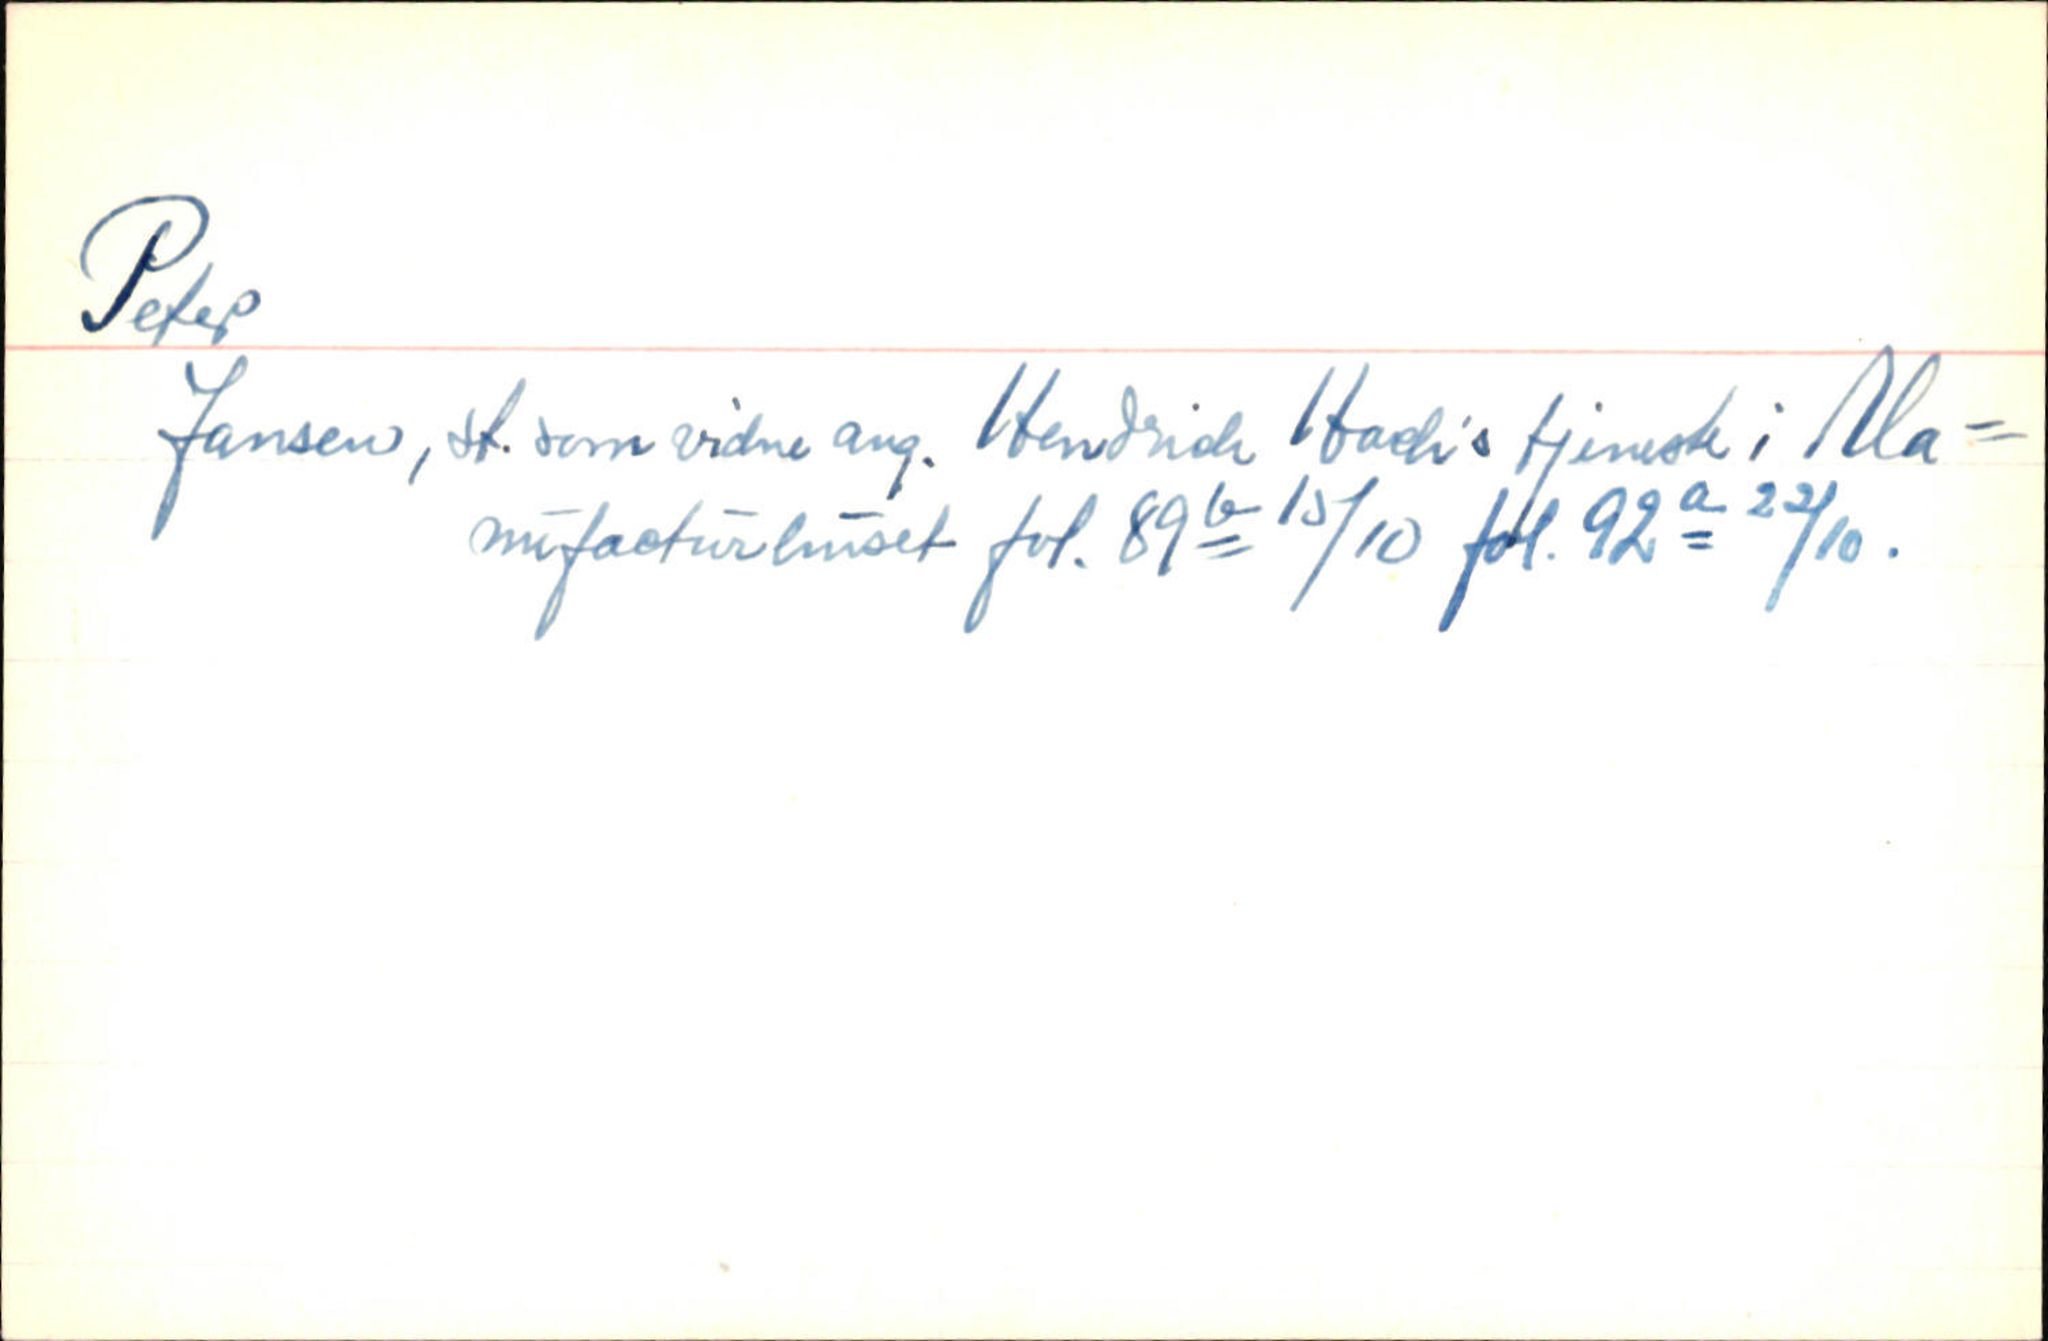 Peter
Jansen, st. som vidne ang. Hendrich Hach's tjeneste i Ma=
nufacturhuset fol. 89 b 15/10 fol. 92 a 22/10.